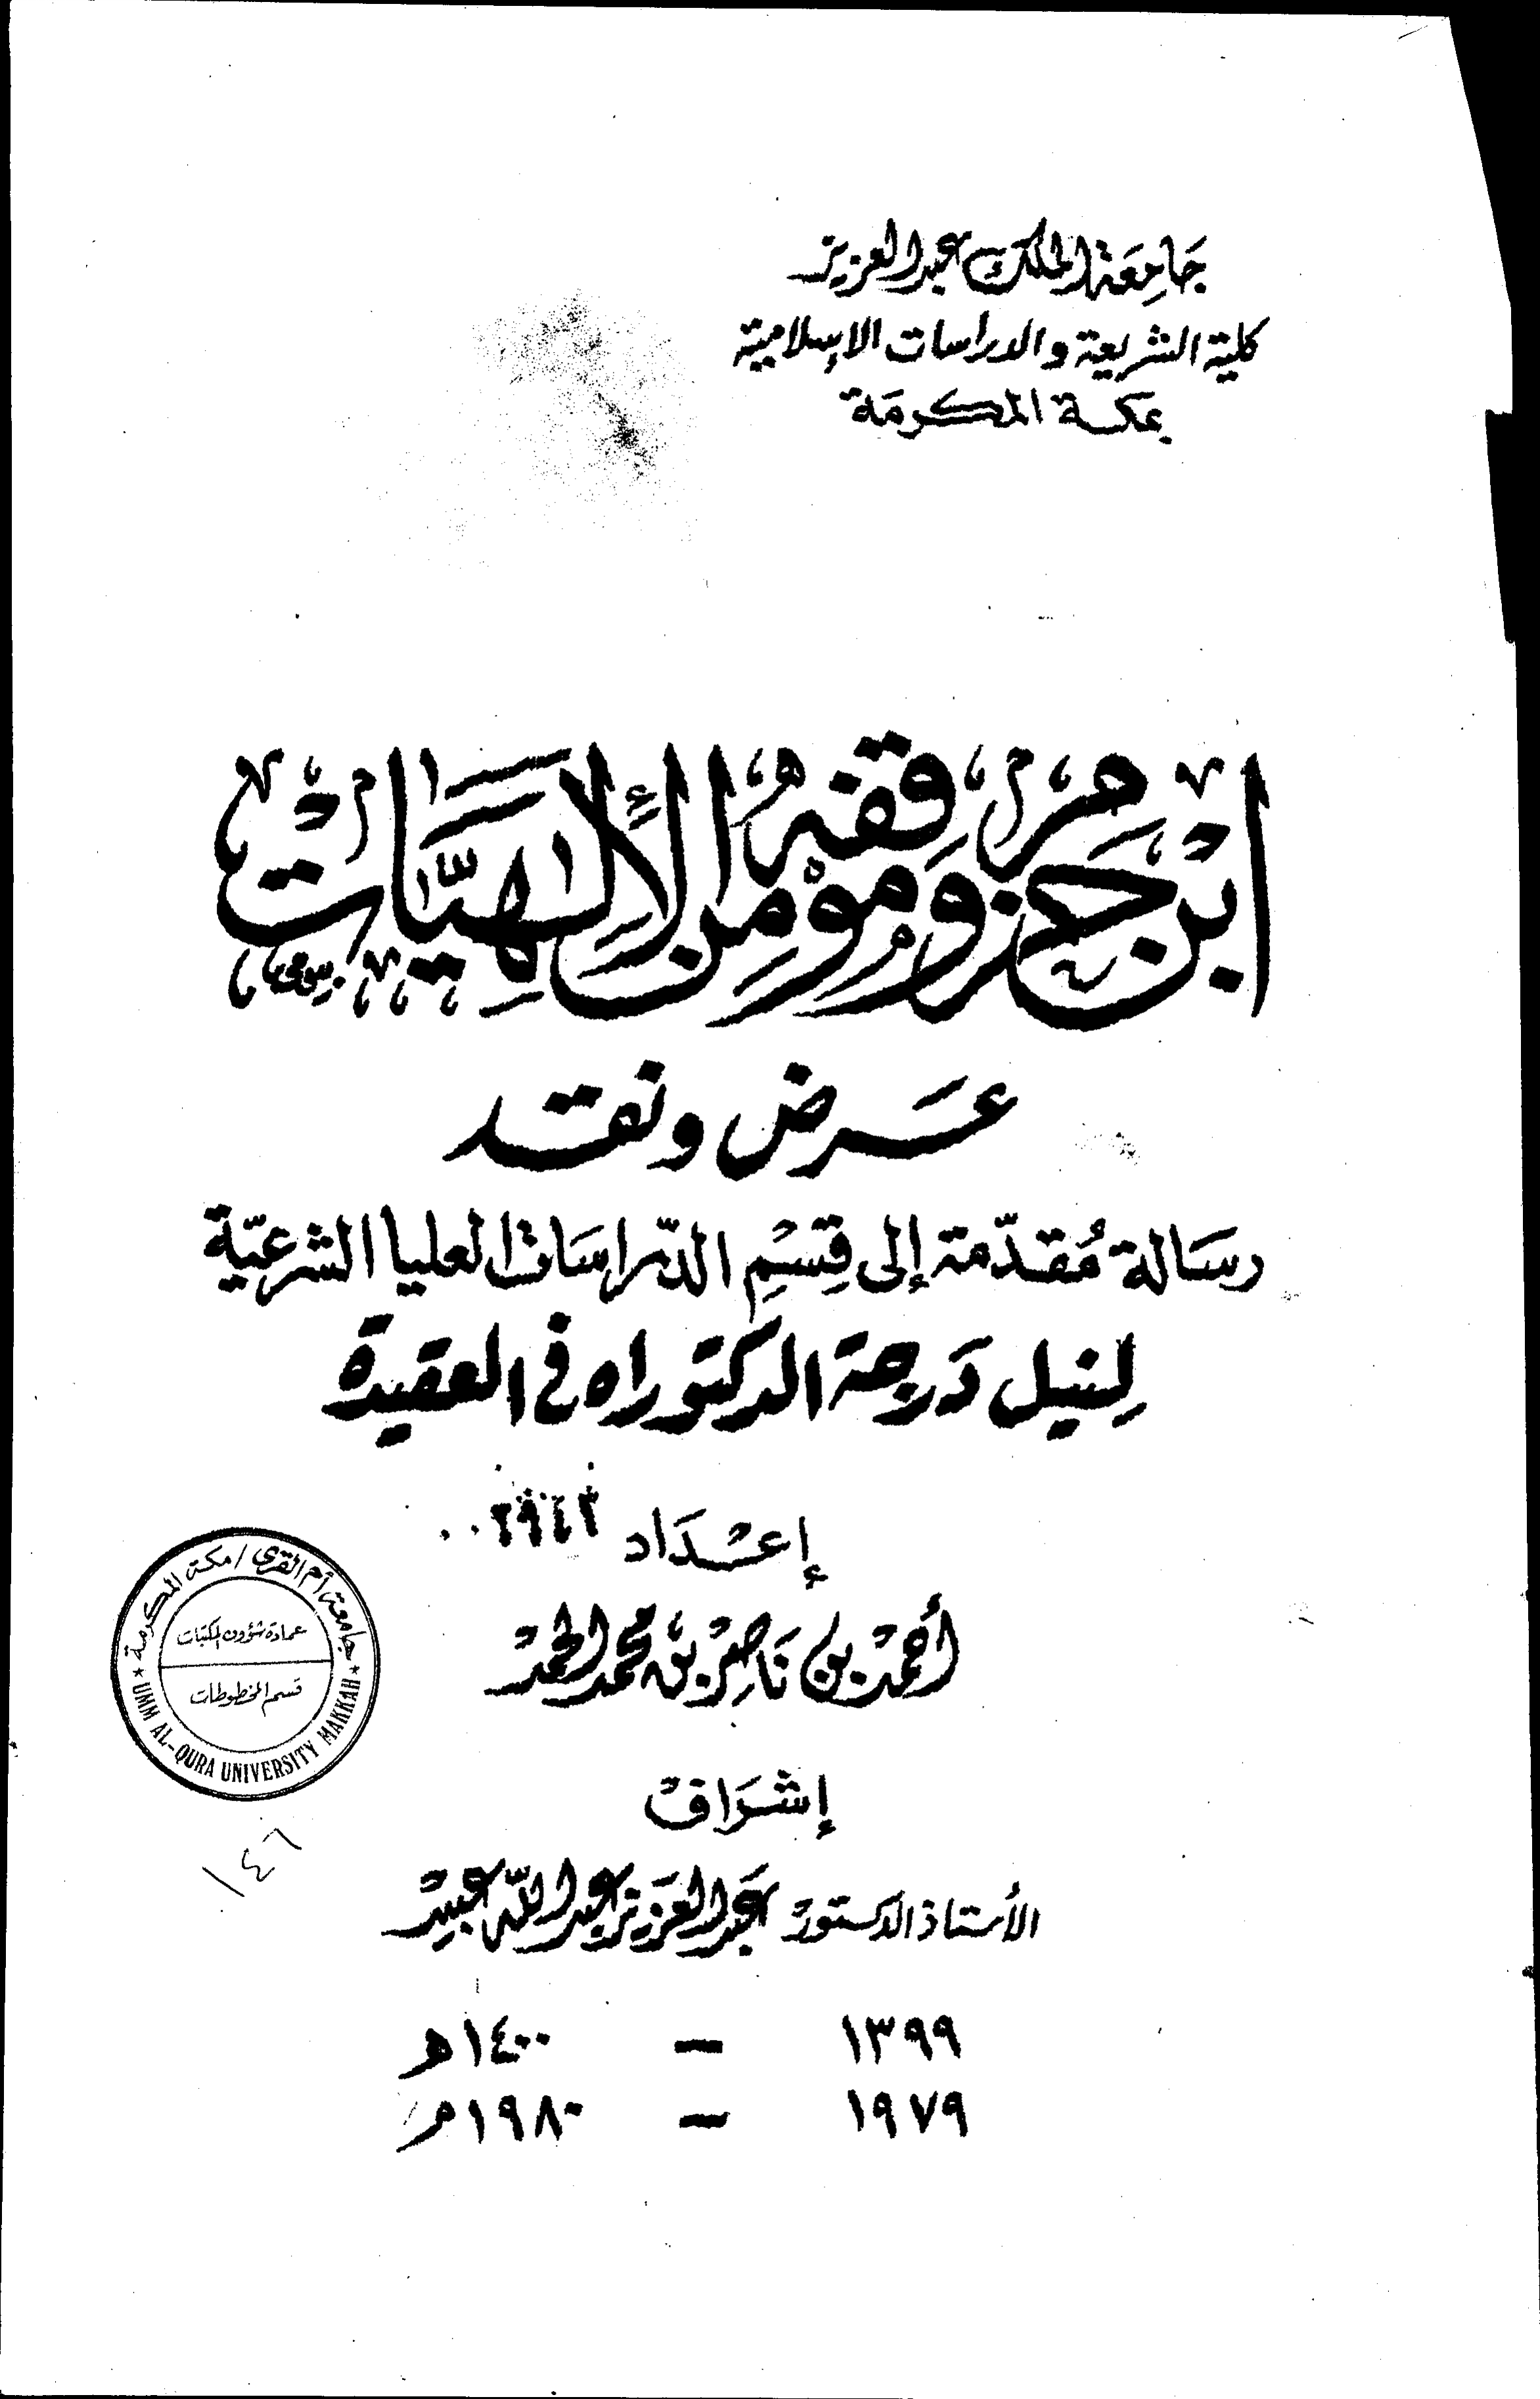 جَامِعَة الملك عبد العزيز
كلية الشريعة والدراسات الإسلامية
بمكة المكرمَة
ابْن حَزم وموقفه مِن الإلهيَّات
عَرض ونقد
رسَالة مُقدّمة إلى قِسْمِ الدّراسَات العليا الشرعيّة
لِنيل دَرجة الدكتوراه في العقيدة
إعْدَاد
٠٠٢٩٤٢
أحمَدْ بن نَاصِرْ بن محمد الحمَدْ
جامعة أم القرى / مكة المكرمة
عمادة شؤون المكتبات
قسم المخطوطات
UMM AL-QURA UNIVERSITY MAKKAH
١٤٦
إشْرَاف
الأستاذ الدكتور عَبد العَزيز عبد اللّه عبيدْ
١٣٩٩ – ١٤٠٠ هـ
١٩٧٩ – ١٩٨٠ م